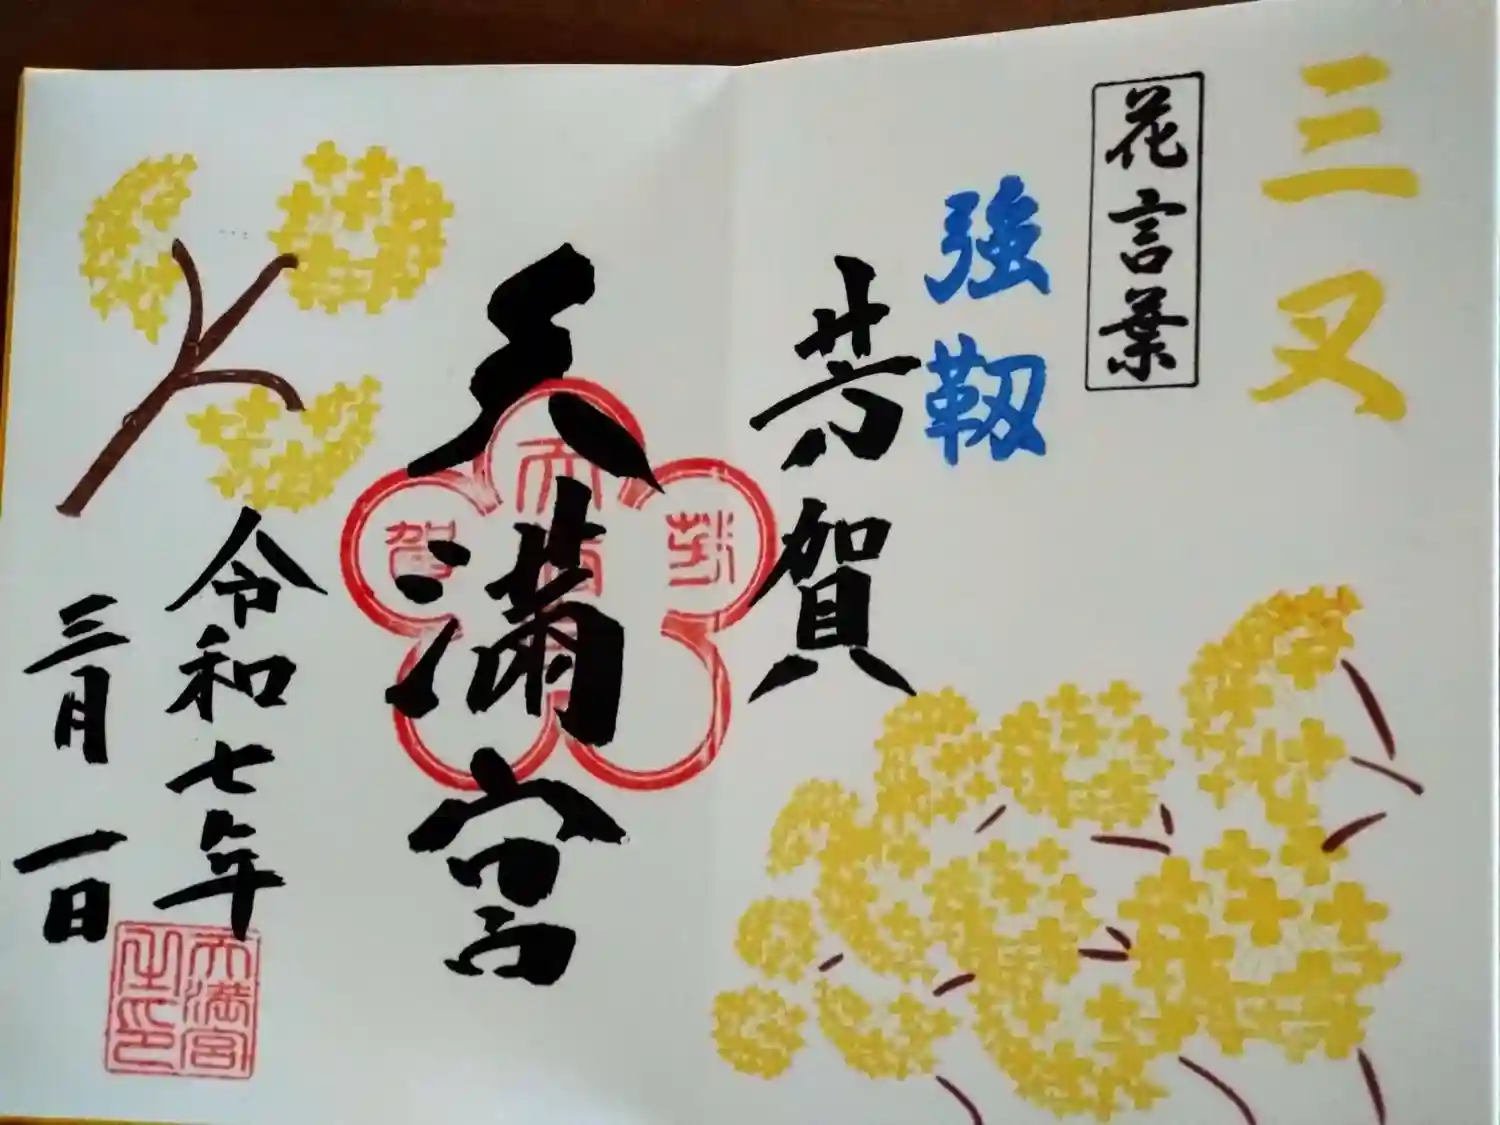 三叉
花言葉
強靱
芳賀
天満宮
天満
芳
賀
令和七年
三月一日
天満宮
之印